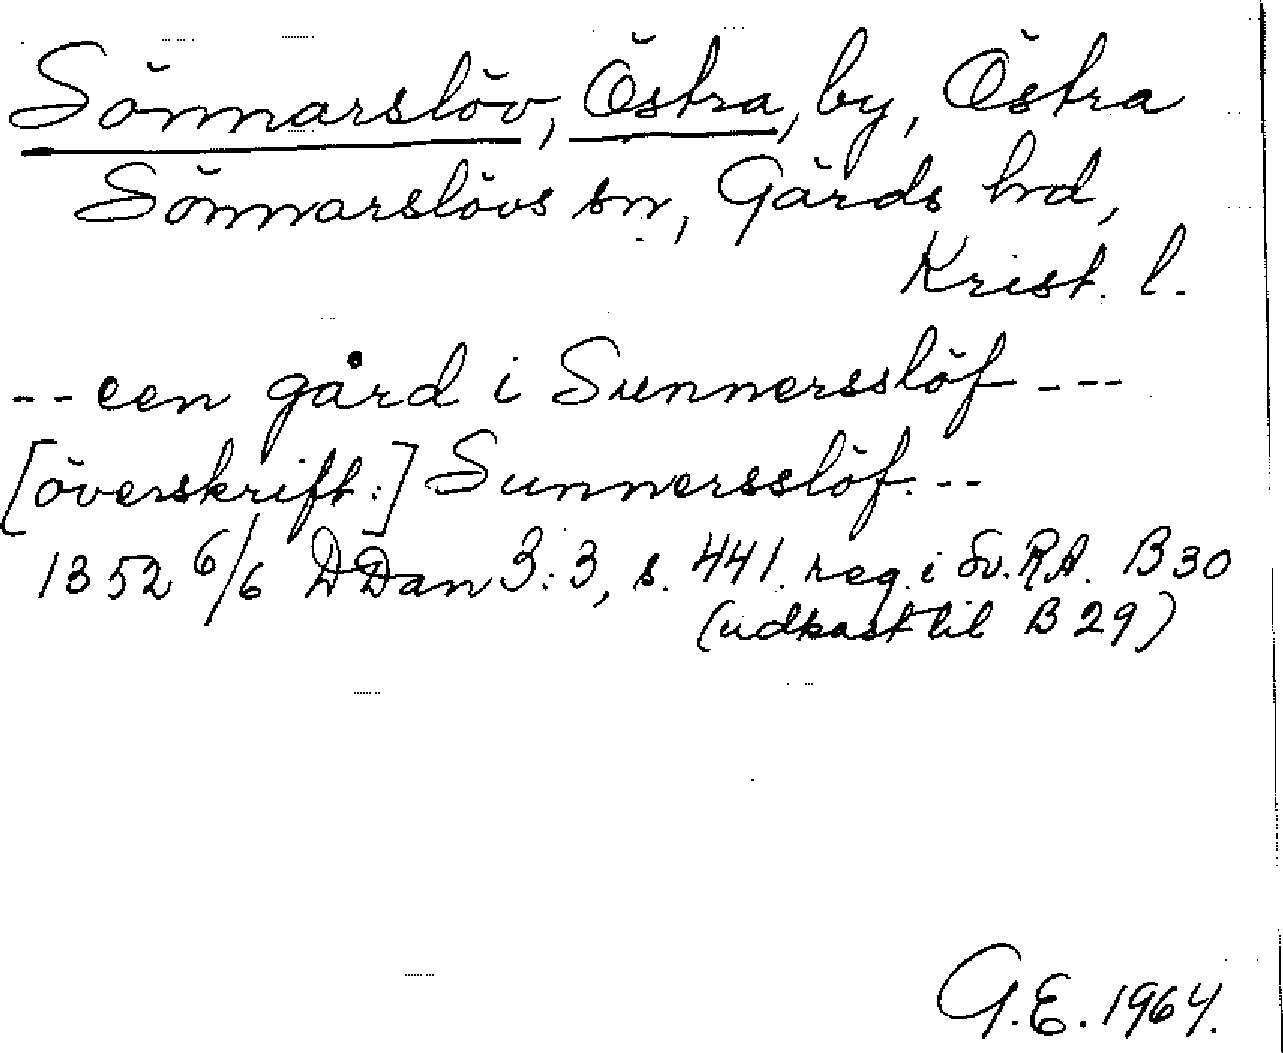 Sönnarslöv, Östra, by, Östra
Sönnarslövs sn, Gärds hd,
Krist. l.
-- een gård i Sunnersslöf ---
[överskrift:] Sunnersslöf.--
1352 6/6 DDan 3:3, s. 441. reg. i Sv. RA. B 30
(udkast til B 29)
G.E. 1964.